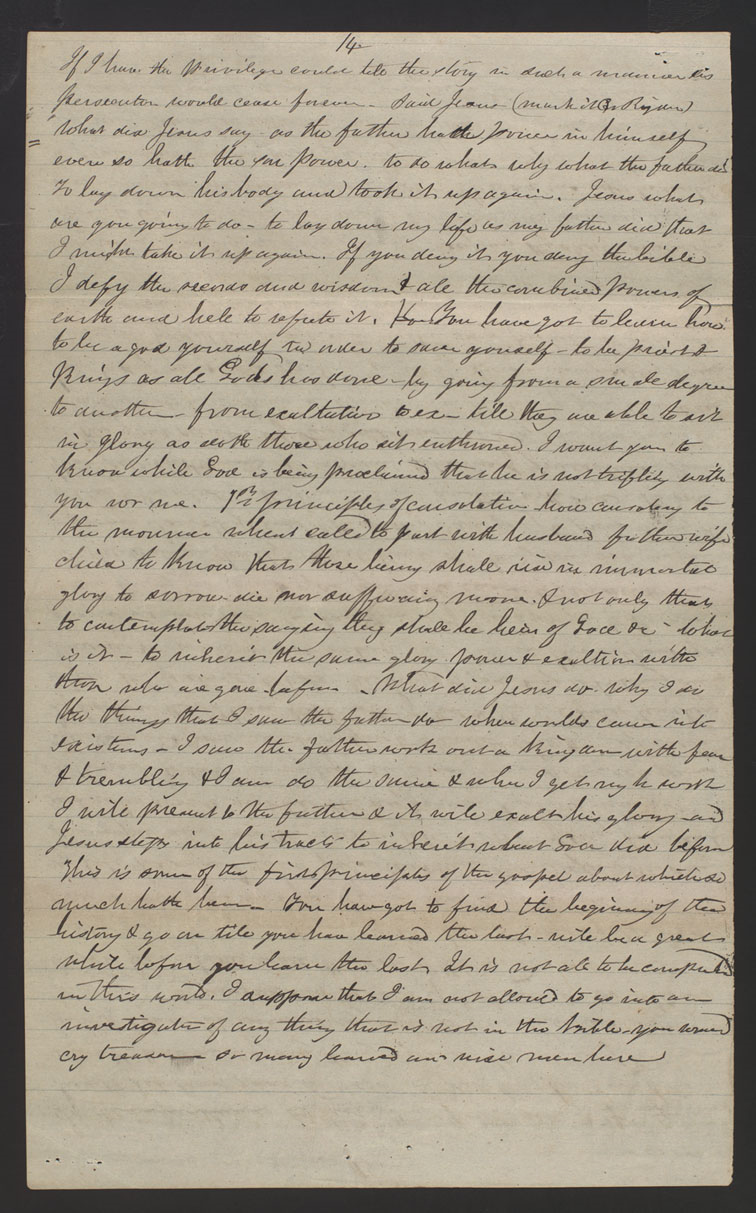 14
If I have the privilege could tell the story in such a manner as
persecution would cease forever - said Jesus (mark it Br Rigdon)
What did Jesus say - as the father hath power in himself
even so hath the son power - to do what why what the father did
To lay down his body and took it up again. Jesus what
are you going to do - to lay down my life as my father did that
I might take it up again. If you deny it you deny the bible
I defy the records and wisdom & all the combined powers of
earth and hell to refute it. You have got to learn how
to be a god yourself in order to save yourself - to be priest &
Kings as all Gods has done - by going from a small degree
to another - from exaltation to ex - till they are able to sit
in glory as doth those who sit enthroned. I want you to
know while God is being proclaimed that he is not trifling with
you nor me. 1st principles of consolation - how consoling to
the mourner when called to part with husband father wife
child to know that those being shall rise in immortal
glory to sorrow die nor suffer any more. & not only that
to contemplate the saying they shall be heirs of God &c - what
is it - to inherit the same glory power & exaltion with
those who are gone before. What did Jesus do - why I do
the things that I saw the father do when worlds came into
existens - I saw the father work out a kingdom with fear
& trembling & I am do the same & when I get my k work
I will present to the father & it will exalt his glory - and
Jesus steps into his tracts to inherit what God did before
This is some of the first principles of the gospel about which so
much hath been - You have got to find the beginning of the
history & go on till you have learned the last - will be a great
while before you learn the last. It is not all to be comprehended
in this world. I suppose that I am not allowed to go into an
investigation of any thing that is not in the bible - you would
cry treason so many learned and wise men here